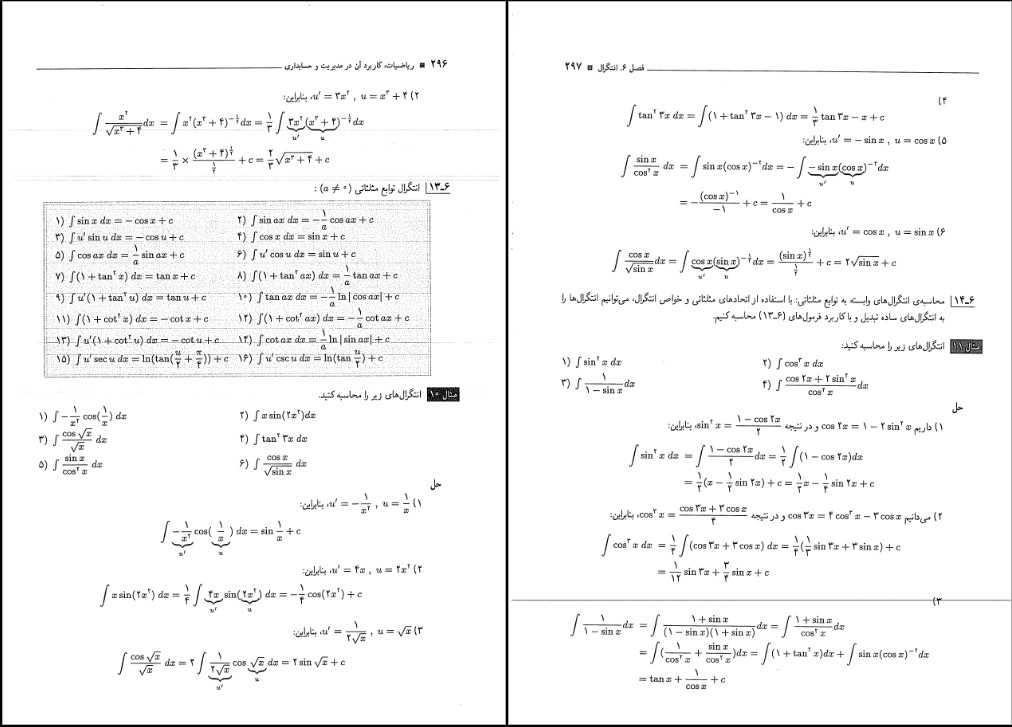 ۲۹۶ ■ ریاضیات، کاربرد آن در مدیریت و حسابداری
۲) u = x³ + ۴ , u′ = ۳x²، بنابراین:
∫ x²/√(x³ + ۴) dx = ∫ x²(x³ + ۴)^(−۱/۲) dx = ۱/۳ ∫ ۳x² (x³ + ۴)^(−۱/۲) dx
u′ u
= ۱/۳ × (x³ + ۴)^(۱/۲) / (۱/۲) + c = ۲/۳ √(x³ + ۴) + c
۱۳ـ۶ انتگرال توابع مثلثاتی (a ≠ ۰) :
۱) ∫ sin x dx = − cos x + c ۲) ∫ sin ax dx = −۱/a cos ax + c
۳) ∫ u′ sin u dx = − cos u + c ۴) ∫ cos x dx = sin x + c
۵) ∫ cos ax dx = ۱/a sin ax + c ۶) ∫ u′ cos u dx = sin u + c
۷) ∫(۱ + tan² x) dx = tan x + c ۸) ∫(۱ + tan² ax) dx = ۱/a tan ax + c
۹) ∫ u′(۱ + tan² u) dx = tan u + c ۱۰) ∫ tan ax dx = −۱/a ln | cos ax| + c
۱۱) ∫(۱ + cot² x) dx = − cot x + c ۱۲) ∫(۱ + cot² ax) dx = −۱/a cot ax + c
۱۳) ∫ u′(۱ + cot² u) dx = − cot u + c ۱۴) ∫ cot ax dx = ۱/a ln | sin ax| + c
۱۵) ∫ u′ sec u dx = ln(tan(u/۲ + π/۴)) + c ۱۶) ∫ u′ csc u dx = ln(tan u/۲) + c
مثال ۱۰ انتگرال‌های زیر را محاسبه کنید.
۱) ∫ −۱/x² cos(۱/x) dx ۲) ∫ x sin(۲x²)dx
۳) ∫ cos √x/√x dx ۴) ∫ tan² ۳x dx
۵) ∫ sin x/cos² x dx ۶) ∫ cos x/√sin x dx
حل
۱) u = ۱/x , u′ = −۱/x²، بنابراین:
∫ −۱/x² cos(۱/x) dx = sin ۱/x + c
u′ u
۲) u = ۲x² , u′ = ۴x، بنابراین:
∫ x sin(۲x²) dx = ۱/۴ ∫ ۴x sin(۲x²) dx = −۱/۴ cos(۲x²) + c
u′ u
۳) u = √x , u′ = ۱/(۲√x)، بنابراین:
∫ cos √x/√x dx = ۲ ∫ ۱/(۲√x) cos √x dx = ۲ sin √x + c
u′ u
فصل ۶. انتگرال ■ ۲۹۷
۴)
∫ tan² ۳x dx = ∫(۱ + tan² ۳x − ۱) dx = ۱/۳ tan ۳x − x + c
۵) u = cos x , u′ = − sin x، بنابراین:
∫ sin x/cos² x dx = ∫ sin x(cos x)^(−۲) dx = − ∫ − sin x (cos x)^(−۲) dx
u′ u
= − (cos x)^(−۱)/−۱ + c = ۱/cos x + c
۶) u = sin x , u′ = cos x، بنابراین:
∫ cos x/√sin x dx = ∫ cos x (sin x)^(−۱/۲) dx = (sin x)^(۱/۲)/(۱/۲) + c = ۲√sin x + c
u′ u
۱۴ـ۶ محاسبه‌ی انتگرال‌های وابسته، به توابع مثلثاتی: با استفاده از اتحادهای مثلثاتی و خواص انتگرال، می‌توانیم انتگرال‌ها را
به انتگرال‌های ساده تبدیل و با کاربرد فرمول‌های (۱۳ـ۶) محاسبه کنیم.
مثال ۱۱ انتگرال‌های زیر را محاسبه کنید:
۱) ∫ sin² x dx ۲) ∫ cos³ x dx
۳) ∫ ۱/(۱ − sin x) dx ۴) ∫ (cos ۲x + ۲ sin² x)/cos² x dx
حل
۱) داریم cos ۲x = ۱ − ۲ sin² x و در نتیجه sin² x = (۱ − cos ۲x)/۲، بنابراین:
∫ sin² x dx = ∫ (۱ − cos ۲x)/۲ dx = ۱/۲ ∫(۱ − cos ۲x)dx
= ۱/۲(x − ۱/۲ sin ۲x) + c = ۱/۲ x − ۱/۴ sin ۲x + c
۲) می‌دانیم cos ۳x = ۴ cos³ x − ۳ cos x و در نتیجه cos³ x = (cos ۳x + ۳ cos x)/۴، بنابراین:
∫ cos³ x dx = ۱/۴ ∫(cos ۳x + ۳ cos x) dx = ۱/۴(۱/۳ sin ۳x + ۳ sin x) + c
= ۱/۱۲ sin ۳x + ۳/۴ sin x + c
۳)
∫ ۱/(۱ − sin x) dx = ∫ (۱ + sin x)/((۱ − sin x)(۱ + sin x)) dx = ∫ (۱ + sin x)/cos² x dx
= ∫(۱/cos² x + sin x/cos² x)dx = ∫(۱ + tan² x)dx + ∫ sin x(cos x)^(−۲) dx
= tan x + ۱/cos x + c